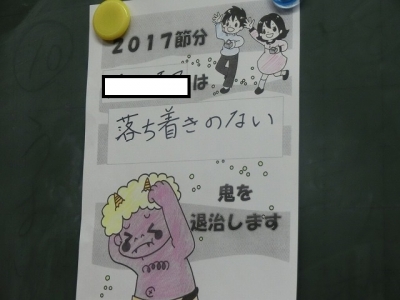 2017節分
は
落ち着きのない
鬼を
退治します